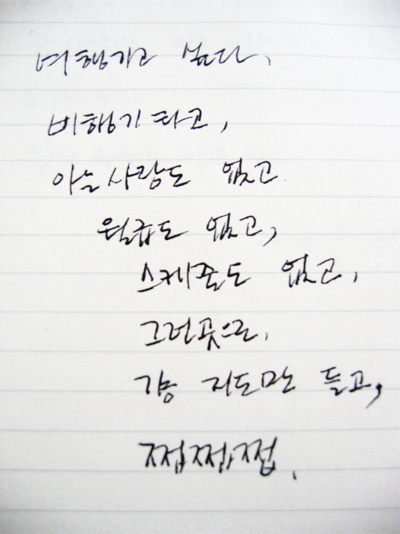 여행가고 싶다,
비행기타고,
아는사람도 없고
월급도 없고,
스케쥴도 없고,
그런곳으로,
걍 지도만 들고,
쩝쩝쩝.